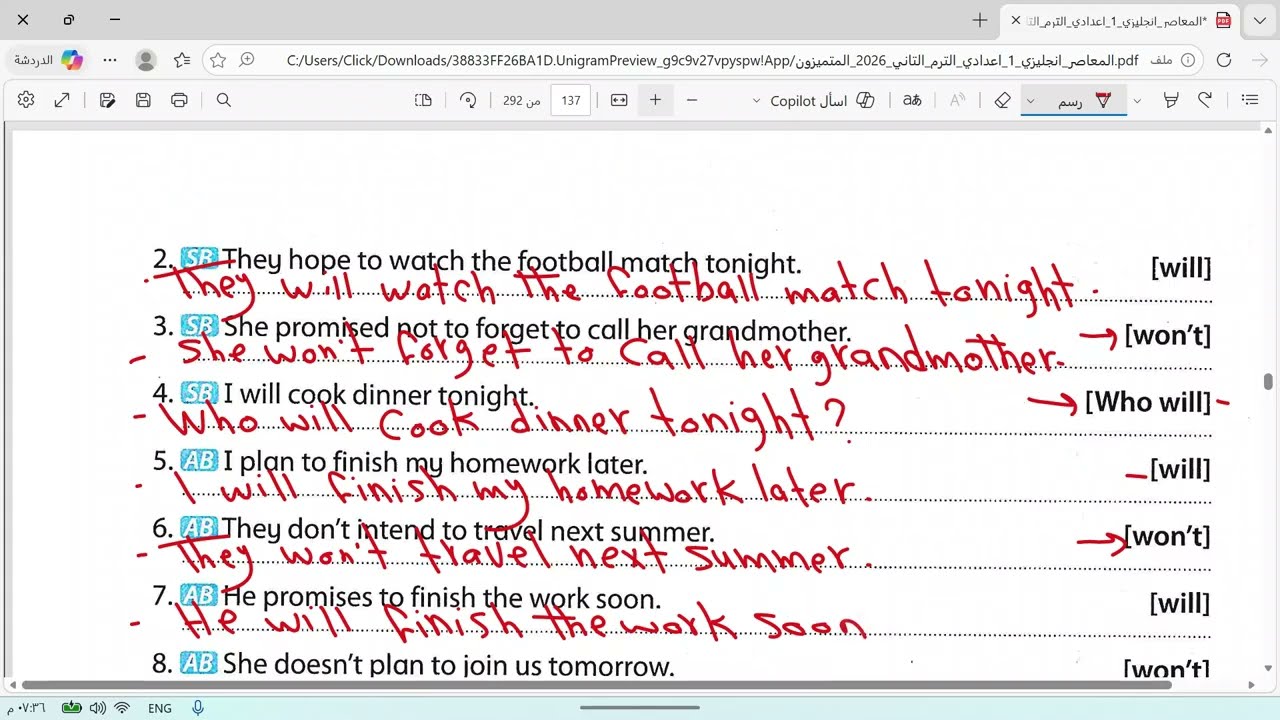 *المعاصر_انجليزي_1_اعدادي_الترم_التا
الدردشة
C:/Users/Click/Downloads/38833FF26BA1D.UnigramPreview_g9c9v27vpyspw!App/المعاصر_انجليزي_1_اعدادي_الترم_الثاني_2026_المتميزون.pdf
ملف
من 292
137
اسأل Copilot
رسم
2. SB They hope to watch the football match tonight. [will]
. They will watch the football match tonight.
3. SB She promised not to forget to call her grandmother. → [won't]
- She won't forget to call her grandmother.
4. SB I will cook dinner tonight. → [Who will] -
- Who will cook dinner tonight?
5. AB I plan to finish my homework later. - [will]
- I will finish my homework later.
6. AB They don't intend to travel next summer. → [won't]
- They won't travel next summer.
7. AB He promises to finish the work soon. [will]
- He will finish the work soon
8. AB She doesn't plan to join us tomorrow. [won't]
٠٧:٣٦ م
ENG